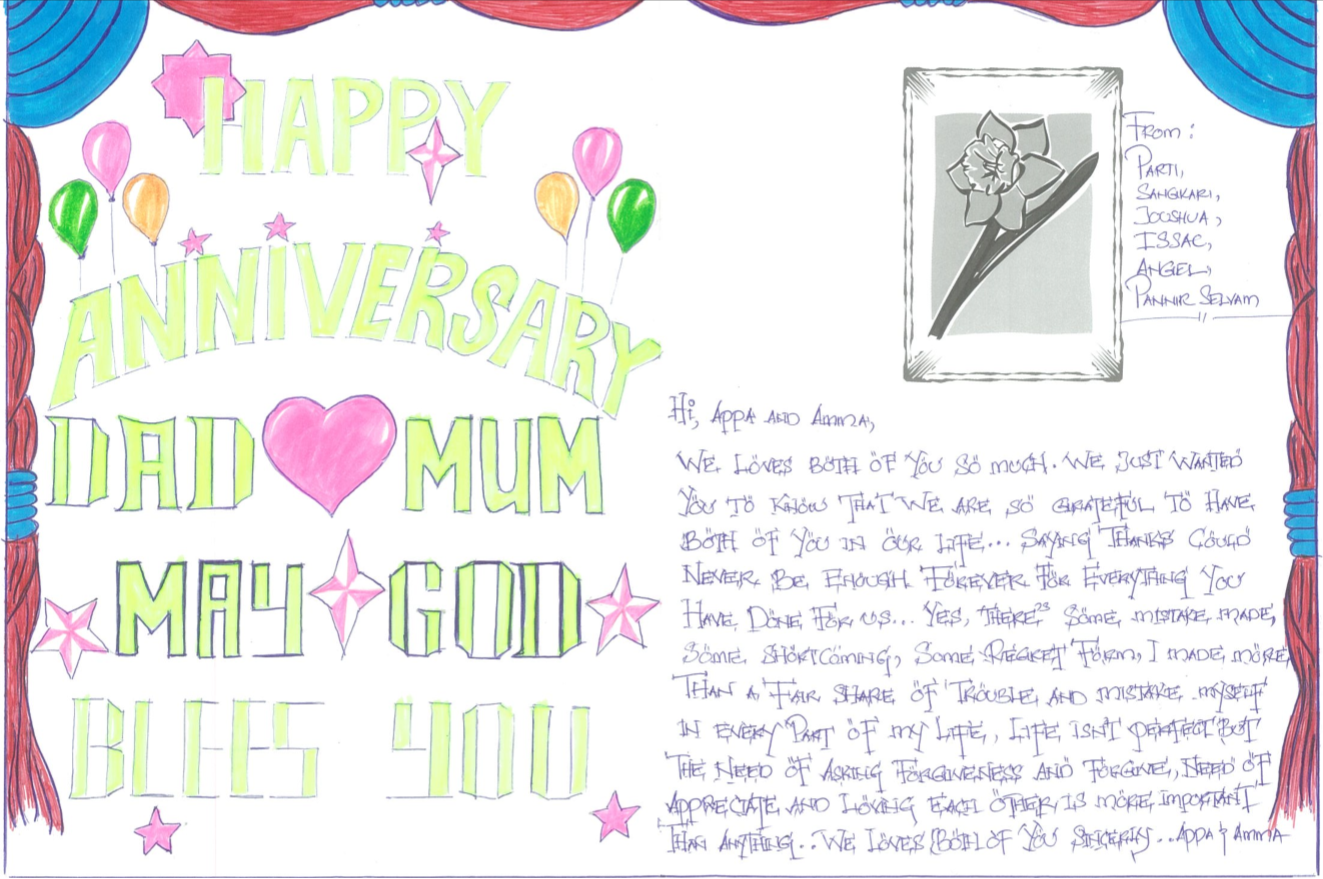 HAPPY
ANNIVERSARY
DAD MUM
MAY GOD
BLESS YOU
From:
PARTI,
SANGKARI,
JOOSHUA,
ISSAC,
ANGEL,
PANNIR SELVAM
Hi, APPA AND AMMA,
WE LOVES BOTH OF YOU SO MUCH. WE JUST WANTED
YOU TO KNOW THAT WE ARE SO GRATEFUL TO HAVE
BOTH OF YOU IN OUR LIFE... SAYING THANKS COULD
NEVER BE ENOUGH FOREVER FOR EVERYTHING YOU
HAVE DONE FOR US... YES, THERE SOME MISTAKE MADE,
SOME SHORTCOMING, SOME REGRET FORM, I MADE MORE
THAN A FAIR SHARE OF TROUBLE AND MISTAKE MYSELF
IN EVERY PART OF MY LIFE, LIFE ISN'T PERFECT BUT
THE NEED OF ASKING FORGIVENESS AND FORGIVE, NEED OF
APPRECIATE AND LOVING EACH OTHER IS MORE IMPORTANT
THAN ANYTHING... WE LOVES BOTH OF YOU SINCERLY... APPA & AMMA